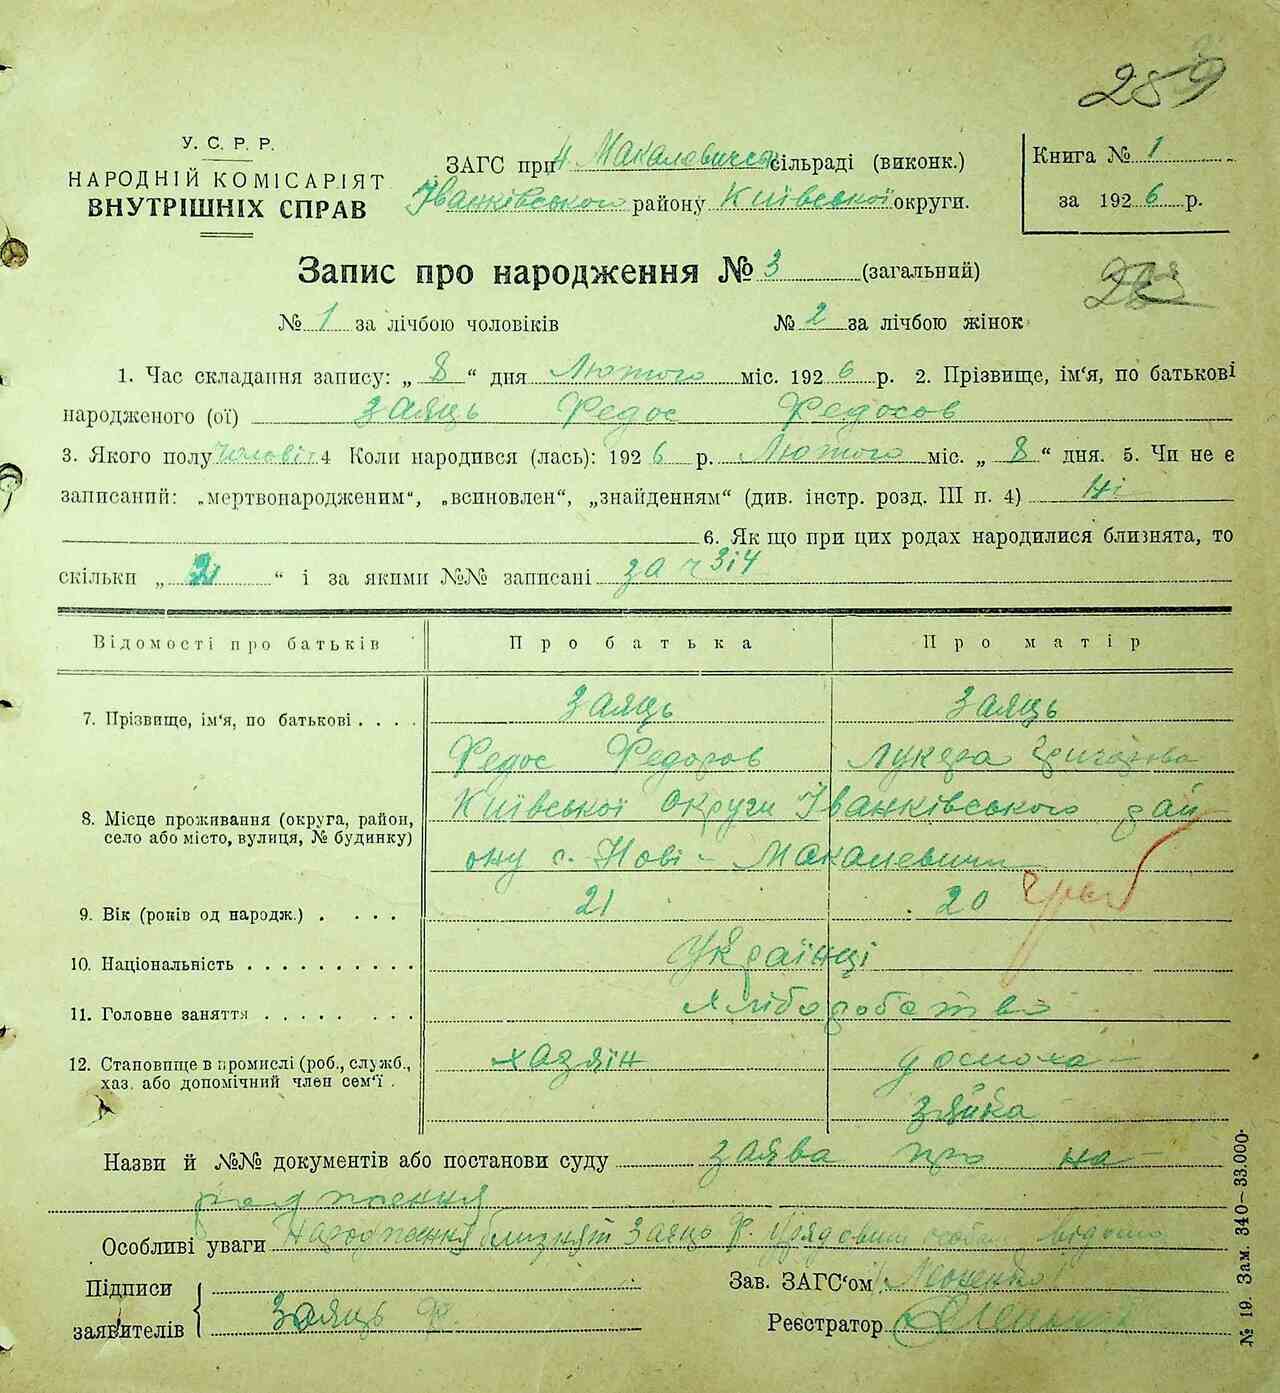 259
У. С. Р. Р.
НАРОДНІЙ КОМІСАРІЯТ
ВНУТРІШНІХ СПРАВ
ЗАГС при Н Макалевичск сільраді (виконк.)
Іванківського району Київської округи.
Книга № 1
за 1926 р.
Запис про народження № 3 (загальний)
№ 1 за лічбою чоловіків № 2 за лічбою жінок
1. Час складання запису: „ 8 “ дня Лютого міс. 1926 р. 2. Прізвище, ім‘я, по батькові
народженого (ої) Заяць Федос Федосов
3. Якого полу чоловіч 4 Коли народився (лась): 1926 р. Лютого міс. „ 8 “ дня. 5. Чи не є
записаний: „мертвонародженим“, „всиновлен“, „знайденням“ (див. інстр. розд. III п. 4) Ні
6. Як що при цих родах народилися близнята, то
скільки „ 2 “ і за якими №№ записані за ч 3 і 4
Відомості про батьків Про батька Про матір
7. Прізвище, ім‘я, по батькові . . . . Заяць Заяць
Федос Федоров Лукера Григорова
8. Місце проживання (округа, район, село або місто, вулиця, № будинку) Київської округи Іванківського рай
ону с. Нові - Макалевичі
9. Вік (років од народж.) . . . . 21 20
10. Національність . . . . . . . . . . Українці
11. Головне заняття . . . . . . . . . Хліборобство
12. Становище в промислі (роб., служб., хаз. або допомічний член сем‘ї . хазяїн домоха-
зяйка
Назви й №№ документів або постанови суду заява про на-
родження
Особливі уваги Народження близнят Заяць Ф.
Підписи
заявителів Заяць Ф.
Зав. ЗАГС‘ом
Реєстратор
№ 19. Зам. 340—33.000.